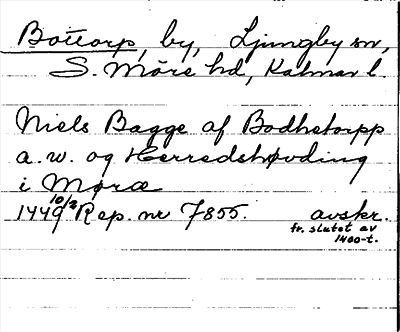 Bottorp, by, Ljungby sn,
S. Möre hd, Kalmar l.
Niels Bagge af Bodhetorpp
a.w. og Herredshøvding
i Møræ
1449 10/2 Rep. nr 7855. avskr.
fr. slutet av
1400-t.